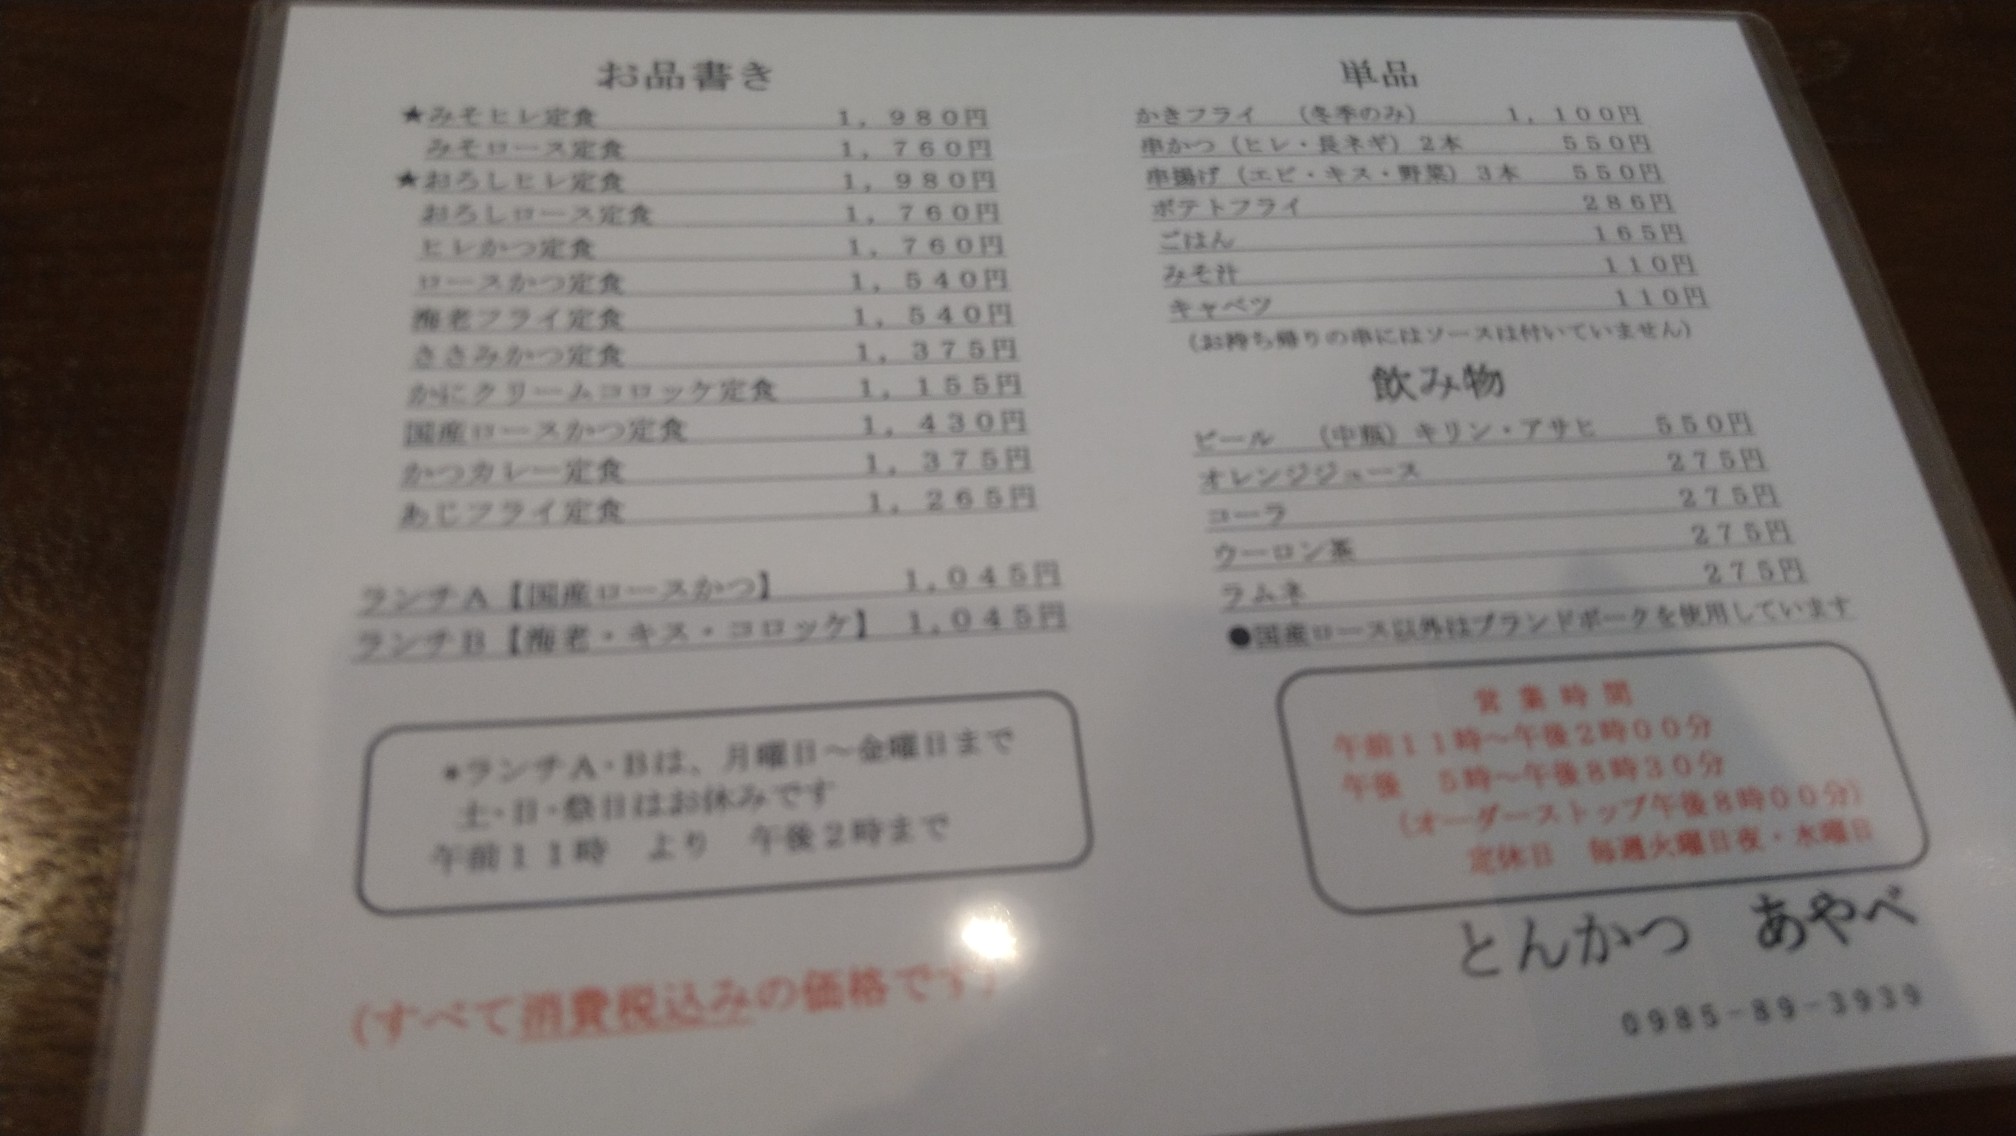 お品書き
★みそヒレ定食 1,980円
みそロース定食 1,760円
★おろしヒレ定食 1,980円
おろしロース定食 1,760円
ヒレかつ定食 1,760円
ロースかつ定食 1,540円
海老フライ定食 1,540円
ささみかつ定食 1,375円
かにクリームコロッケ定食 1,155円
国産ロースかつ定食 1,430円
かつカレー定食 1,375円
あじフライ定食 1,265円
ランチA【国産ロースかつ】 1,045円
ランチB【海老・キス・コロッケ】 1,045円
*ランチA・Bは、月曜日～金曜日まで
土・日・祭日はお休みです
午前11時 より 午後2時まで
(すべて消費税込みの価格です)
単品
かきフライ (冬季のみ) 1,100円
串かつ(ヒレ・長ネギ)2本 550円
串揚げ(エビ・キス・野菜)3本 550円
ポテトフライ 286円
ごはん 165円
みそ汁 110円
キャベツ 110円
(お持ち帰りの串にはソースは付いていません)
飲み物
ビール (中瓶)キリン・アサヒ 550円
オレンジジュース 275円
コーラ 275円
ウーロン茶 275円
ラムネ 275円
●国産ロース以外はブランドポークを使用しています
営業時間
午前11時～午後2時00分
午後 5時～午後8時30分
(オーダーストップ午後8時00分)
定休日 毎週火曜日夜・水曜日
とんかつ あやべ
0985-89-3939